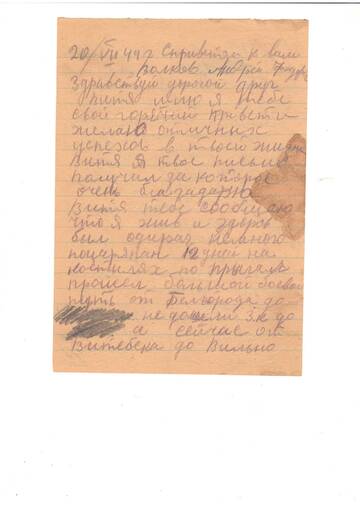 20/VII 44 г С приветом к вам
Волков Андрей
Здравствуй дорогой друг
Витя шлю я тебе
свой горячий привет и
желаю отличных
успехов в твоей жизни
Витя я твое письмо
получил за которое
очень благодарю
Витя тебе сообщаю
что я жив и здоров
был один раз немного
поцарапан 12 дней на
костылях по прыгал
прошел большой боевой
путь от Белгорода до
не дошли 3 к до
а сейчас от
Витебска до Вильно